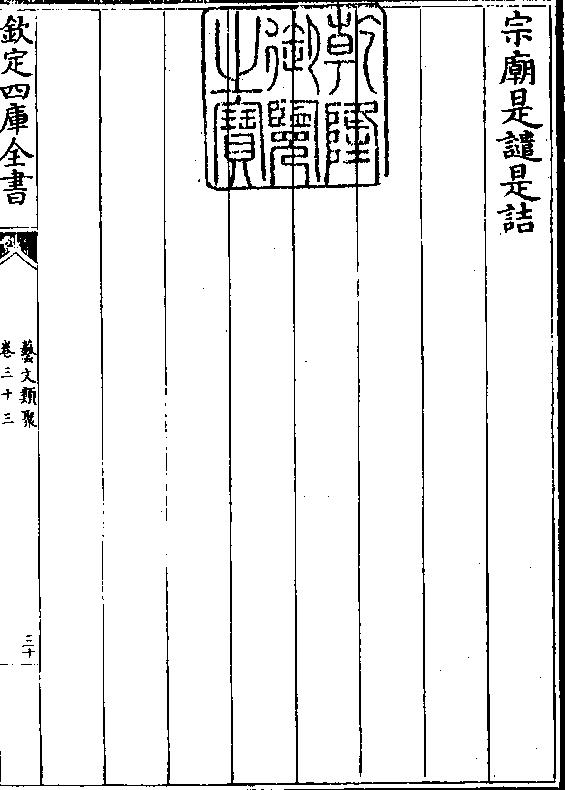 宗廟是譴是詰
乾隆
御覽
之寶
欽定四庫全書
藝文類聚
卷三十三
三十